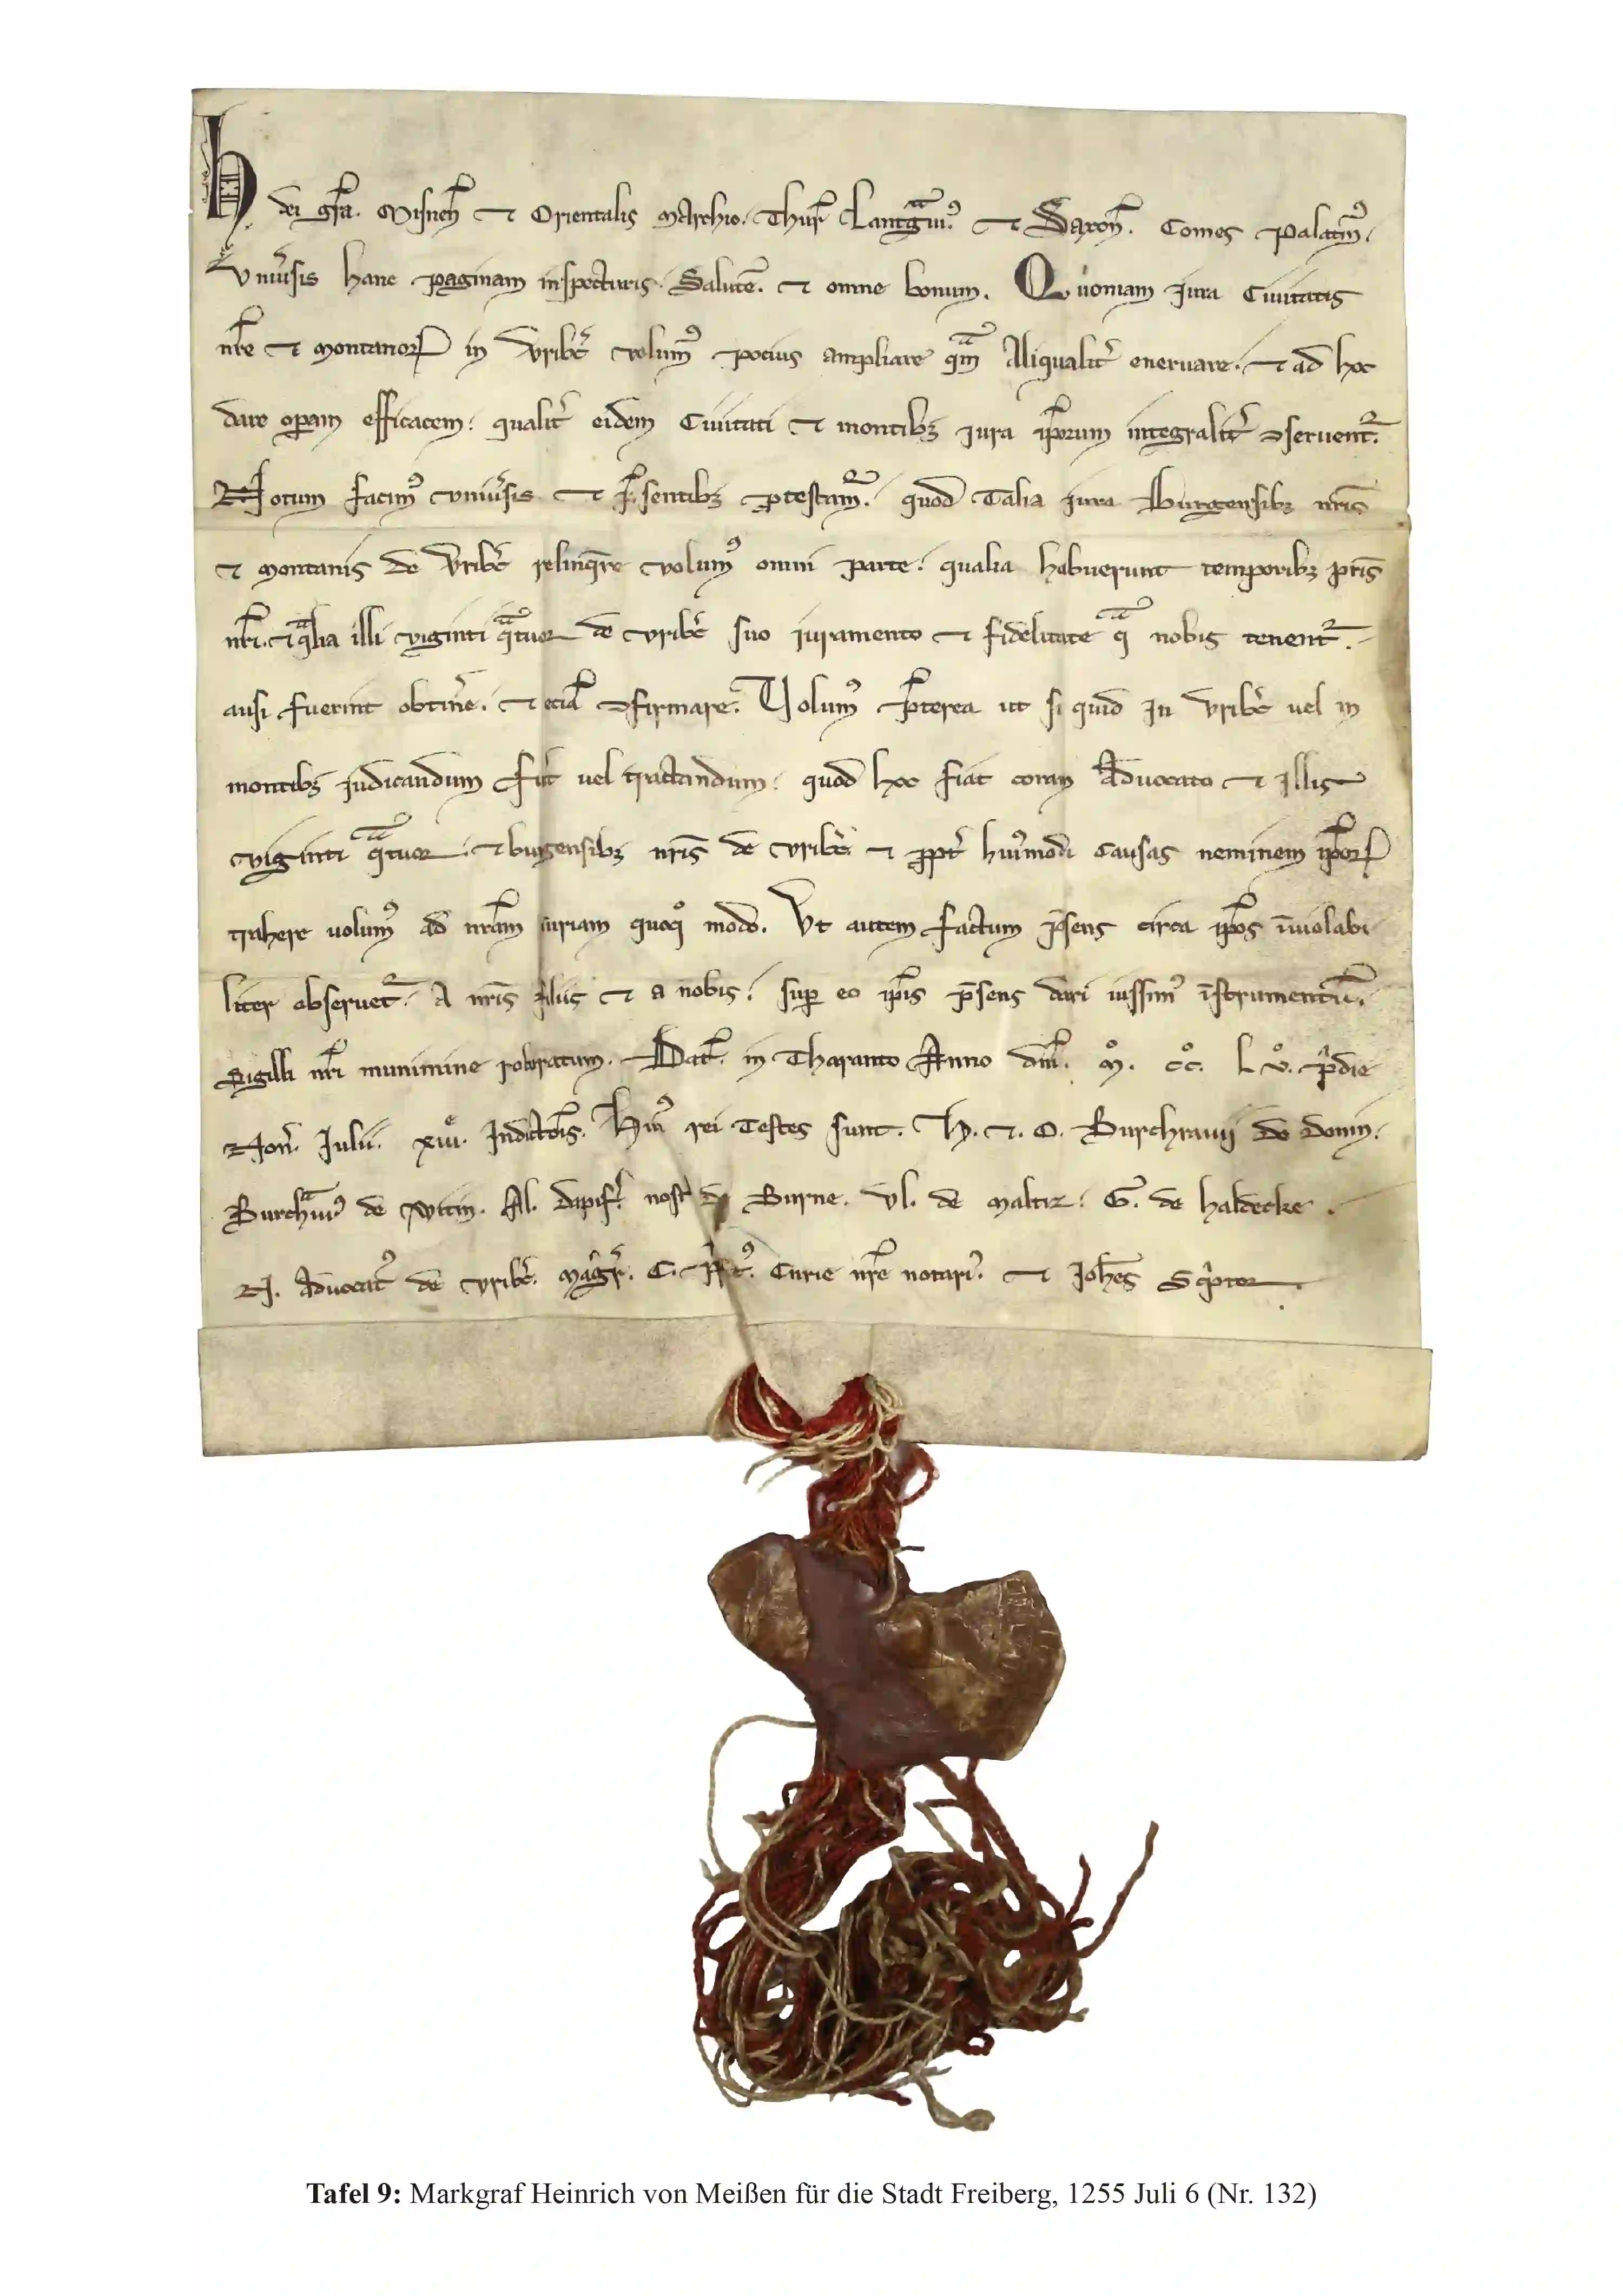 H. dei gr̄a. Misneñ ⁊ Orientalis Marchio. Thur̄ Lantgͣuiꝰ. ⁊ Saxoñ. Comes Palatinꝰ.
Vniuͥsis hanc paginam inspecturis. Salutē. ⁊ omne bonum. Quoniam jura Ciuitatis
nr̄e ⁊ montanoꝝ in Vribc̄ volumꝰ pocius ampliare qͣm Aliqualit̾ eneruare. ⁊ ad hoc
dare oꝑam efficacem. qualit̾ eidem Ciuitati ⁊ montibꝫ jura ip̄orum integralit̾ ꝯseruent᷑.
Notum facimꝰ vniu̾sis ⁊ p̄sentibꝫ ꝓtestam᷑. quod Talia jura Burgensibꝫ nr̄is
⁊ montanis de Vribc̄ relinq̄re volumꝰ omni parte. qualia habuerunt temporibꝫ pr̄is
nr̄i. ⁊ qͣlia illi viginti qͣtuor de vribc̄ suo iuramento ⁊ fidelitate qͣ nobis tenent᷑.
ausi fuerint obtin̾e. ⁊ eciā ꝯfirmare. Volumꝰ p̄terea ut si quid in vribc̄ uel in
montibꝫ judicandum fu̾it uel tractandum. quod hoc fiat coram Aduocato ⁊ illis
viginti qͣtuor. ⁊ burgensibꝫ nr̄is de vribc̄. ⁊ ꝓpt̾ huiꝰmodi causas neminem ip̄oꝝ
trahere uolumꝰ ad nr̄am curiam quoqͦ modo. Vt autem factum p̄sens circa ip̄os īuiolabi
liter obseruet᷑. A nr̄is filiis ⁊ a nobis. suꝑ eo ip̄is p̄sens dari iussimꝰ īstrumentū.
Sigilli nr̄i munimine roboratum. Dat̄. in Tharanto Anno dn̄i. Mͦ. CCͦ. L Vͦ. p̾die
Noñ. Julii. xiiiͤ. Indictōis. Huiꝰ rei Testes sunt. H. ⁊. O. Burchrauij de Donin.
Burchͣuiꝰ de Witin. Al. dapif̾. nost̾ de Burne. Vl. de Maltiz. G. de haldecke.
N. Aduocatꝰ de vribc̄. Magr̄. C. p̄ptꝰ. Curie nr̄e notariꝰ. ⁊ Joh̄es Scͥptor.
Tafel 9: Markgraf Heinrich von Meißen für die Stadt Freiberg, 1255 Juli 6 (Nr. 132)